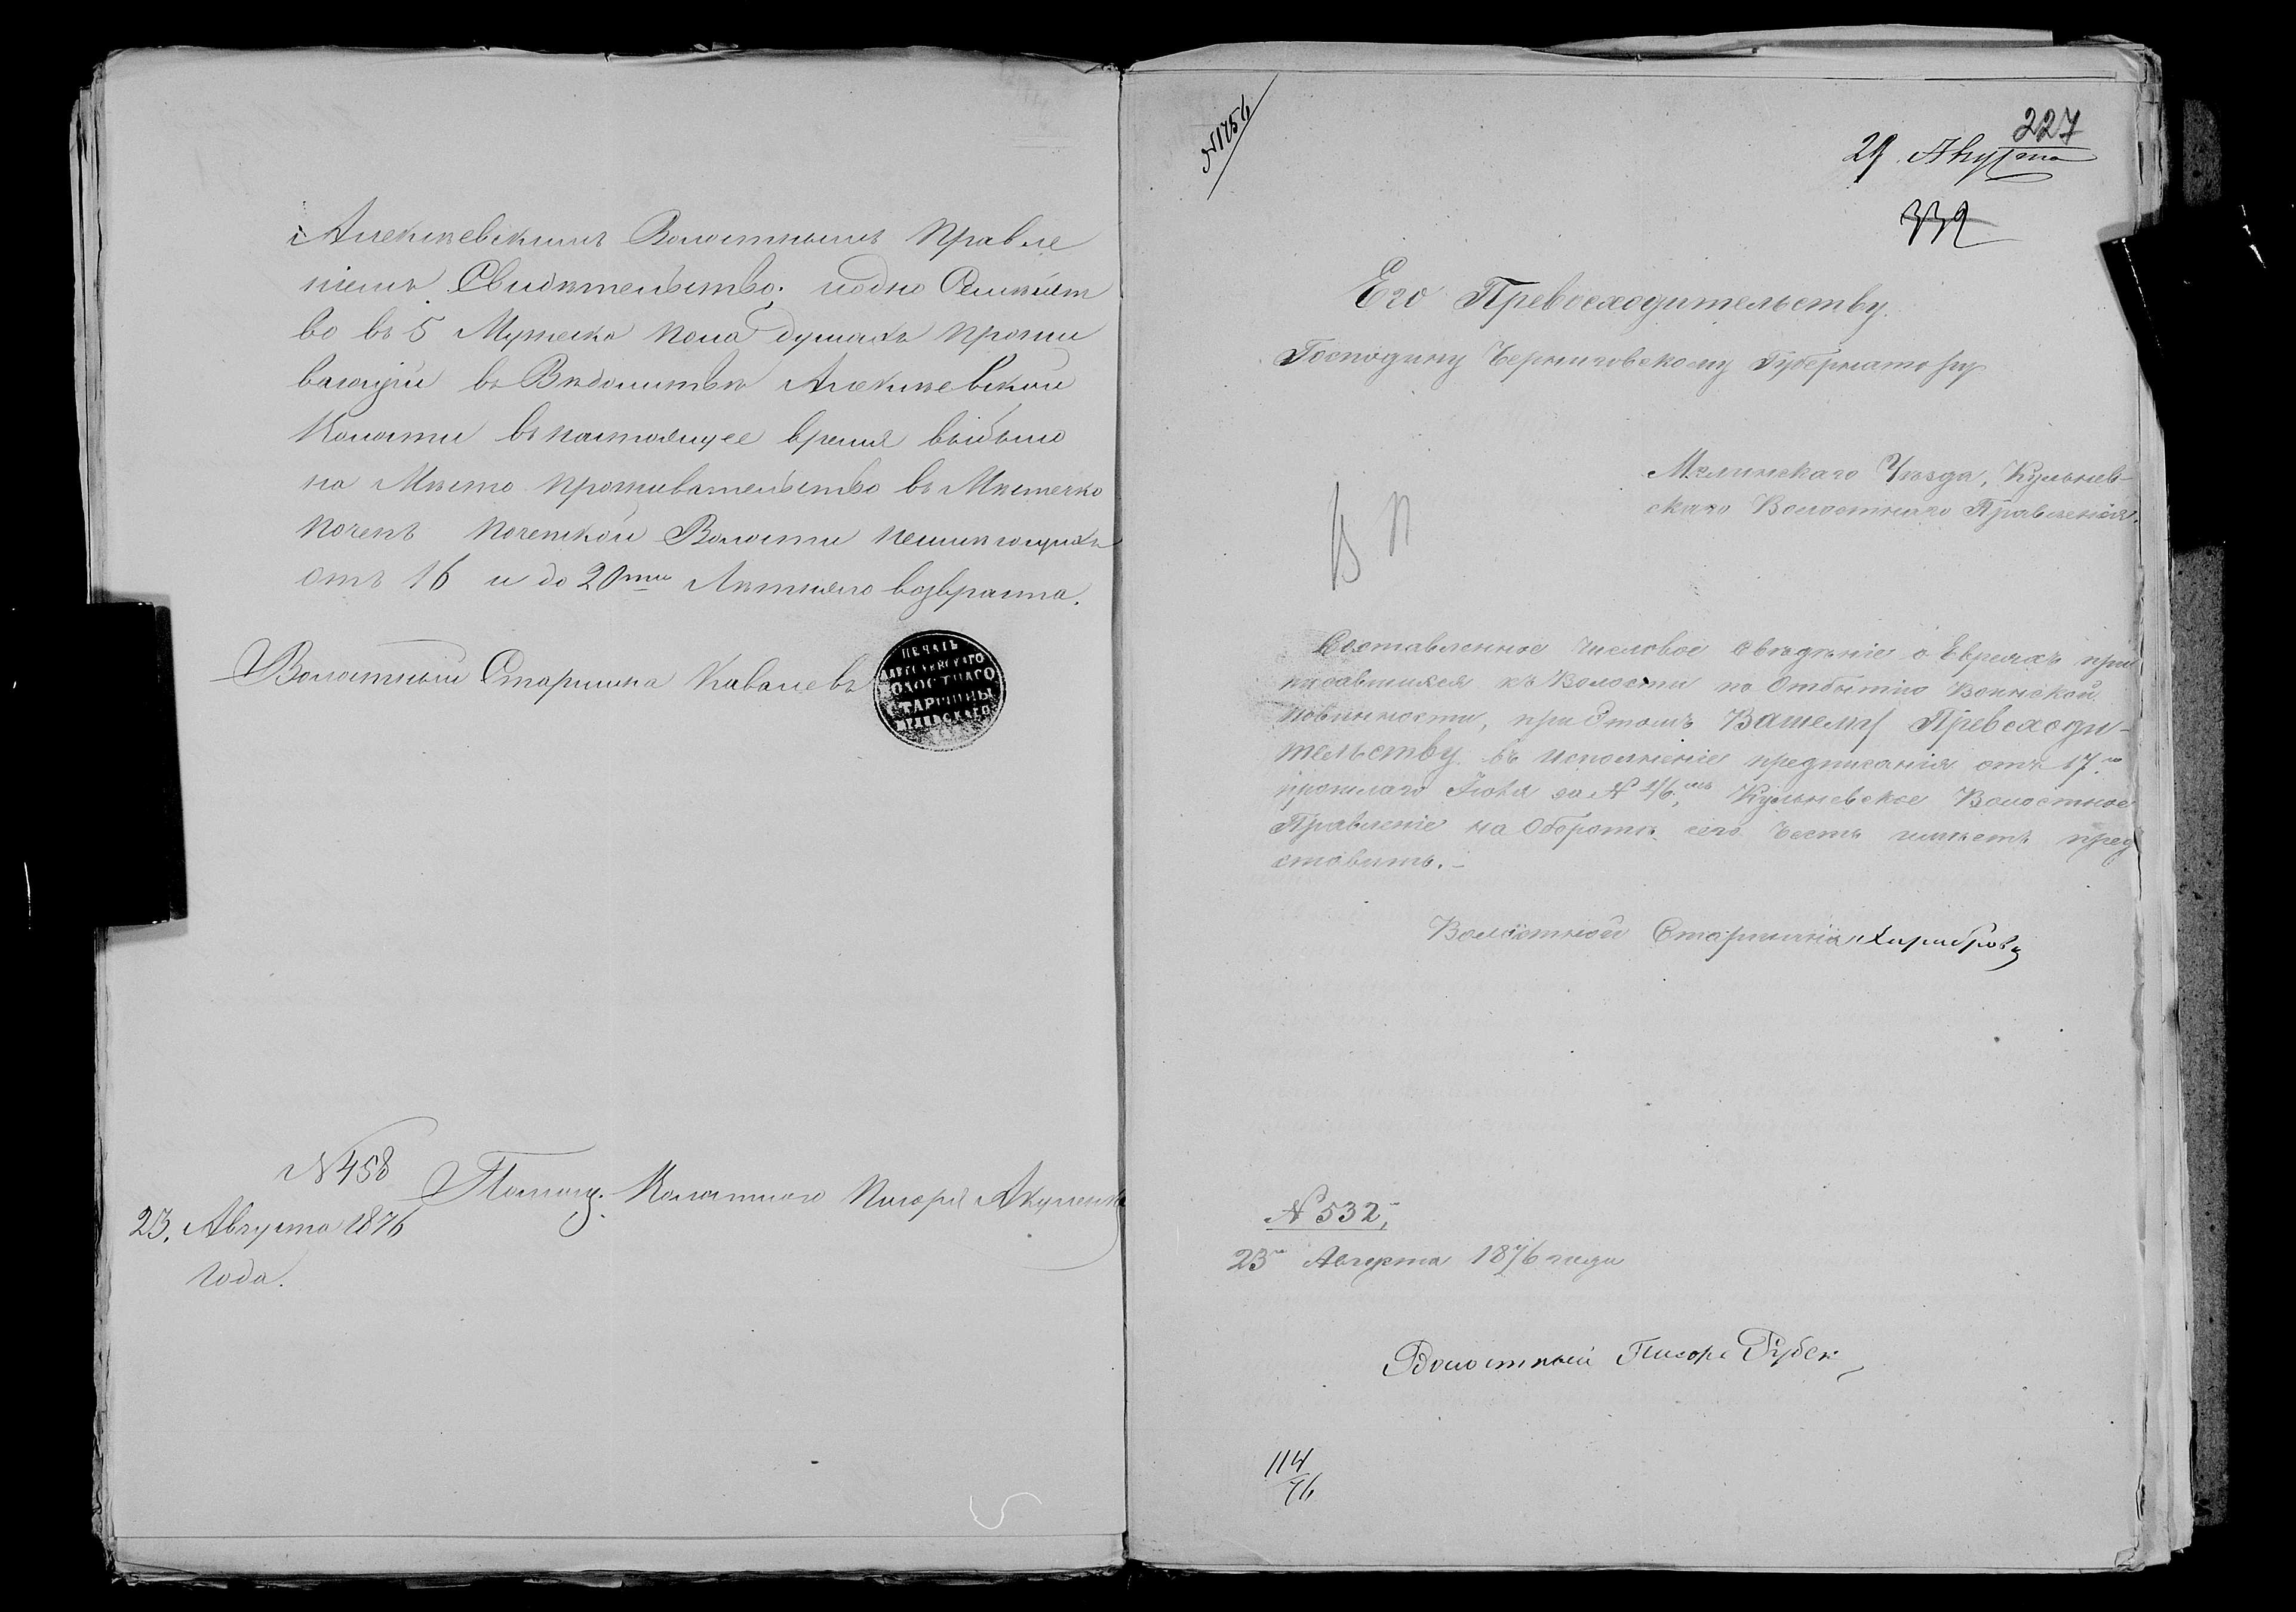 Алексеевскимъ Волостнымъ Правле
ніемъ Свидѣтельство; и одно Семѣйст
во въ 5 Мужеска пола душахъ прожи
вающіи въ Вѣдомствѣ Алексеевской
Волости въ настоящее время выбыло
на Мѣсто прожиательство въ Мѣстечко
Почепъ Почепской Волости неимѣющихъ
отъ 16 и до 20ти Лѣтняго возвраста.
Волостный Старшина Кавалевъ
ПЕЧАТЬ
ВОЛОСТНАГО
СТАРШИНЫ
N 458
Помощ. Волостного Писоря Акуленко
23, Августа 1876
года.
N 1756
227
29 Августа
332
Его Превосходительству
Господину Черниговскому Губернатору
Мглинскаго Уѣзда, Кульнев-
скаго Волостнаго Правленія.
В П
Составленное числовое свѣдѣніе о Евреяхъ при
писавшихся къ Волости по Отбытію Воинской
повинности, при Этомъ Вашему Превосходи-
тельству въ исполненіе предписанія отъ 17го
прошлаго Іюля за N 46мъ, Кульневское Волостное
Правленіе на Оборотѣ сего Честь имѣетъ пред
ставить.-
Волостной Старшина
N 532,
23го Августа 1876 года
Волостный Писорь
114
76